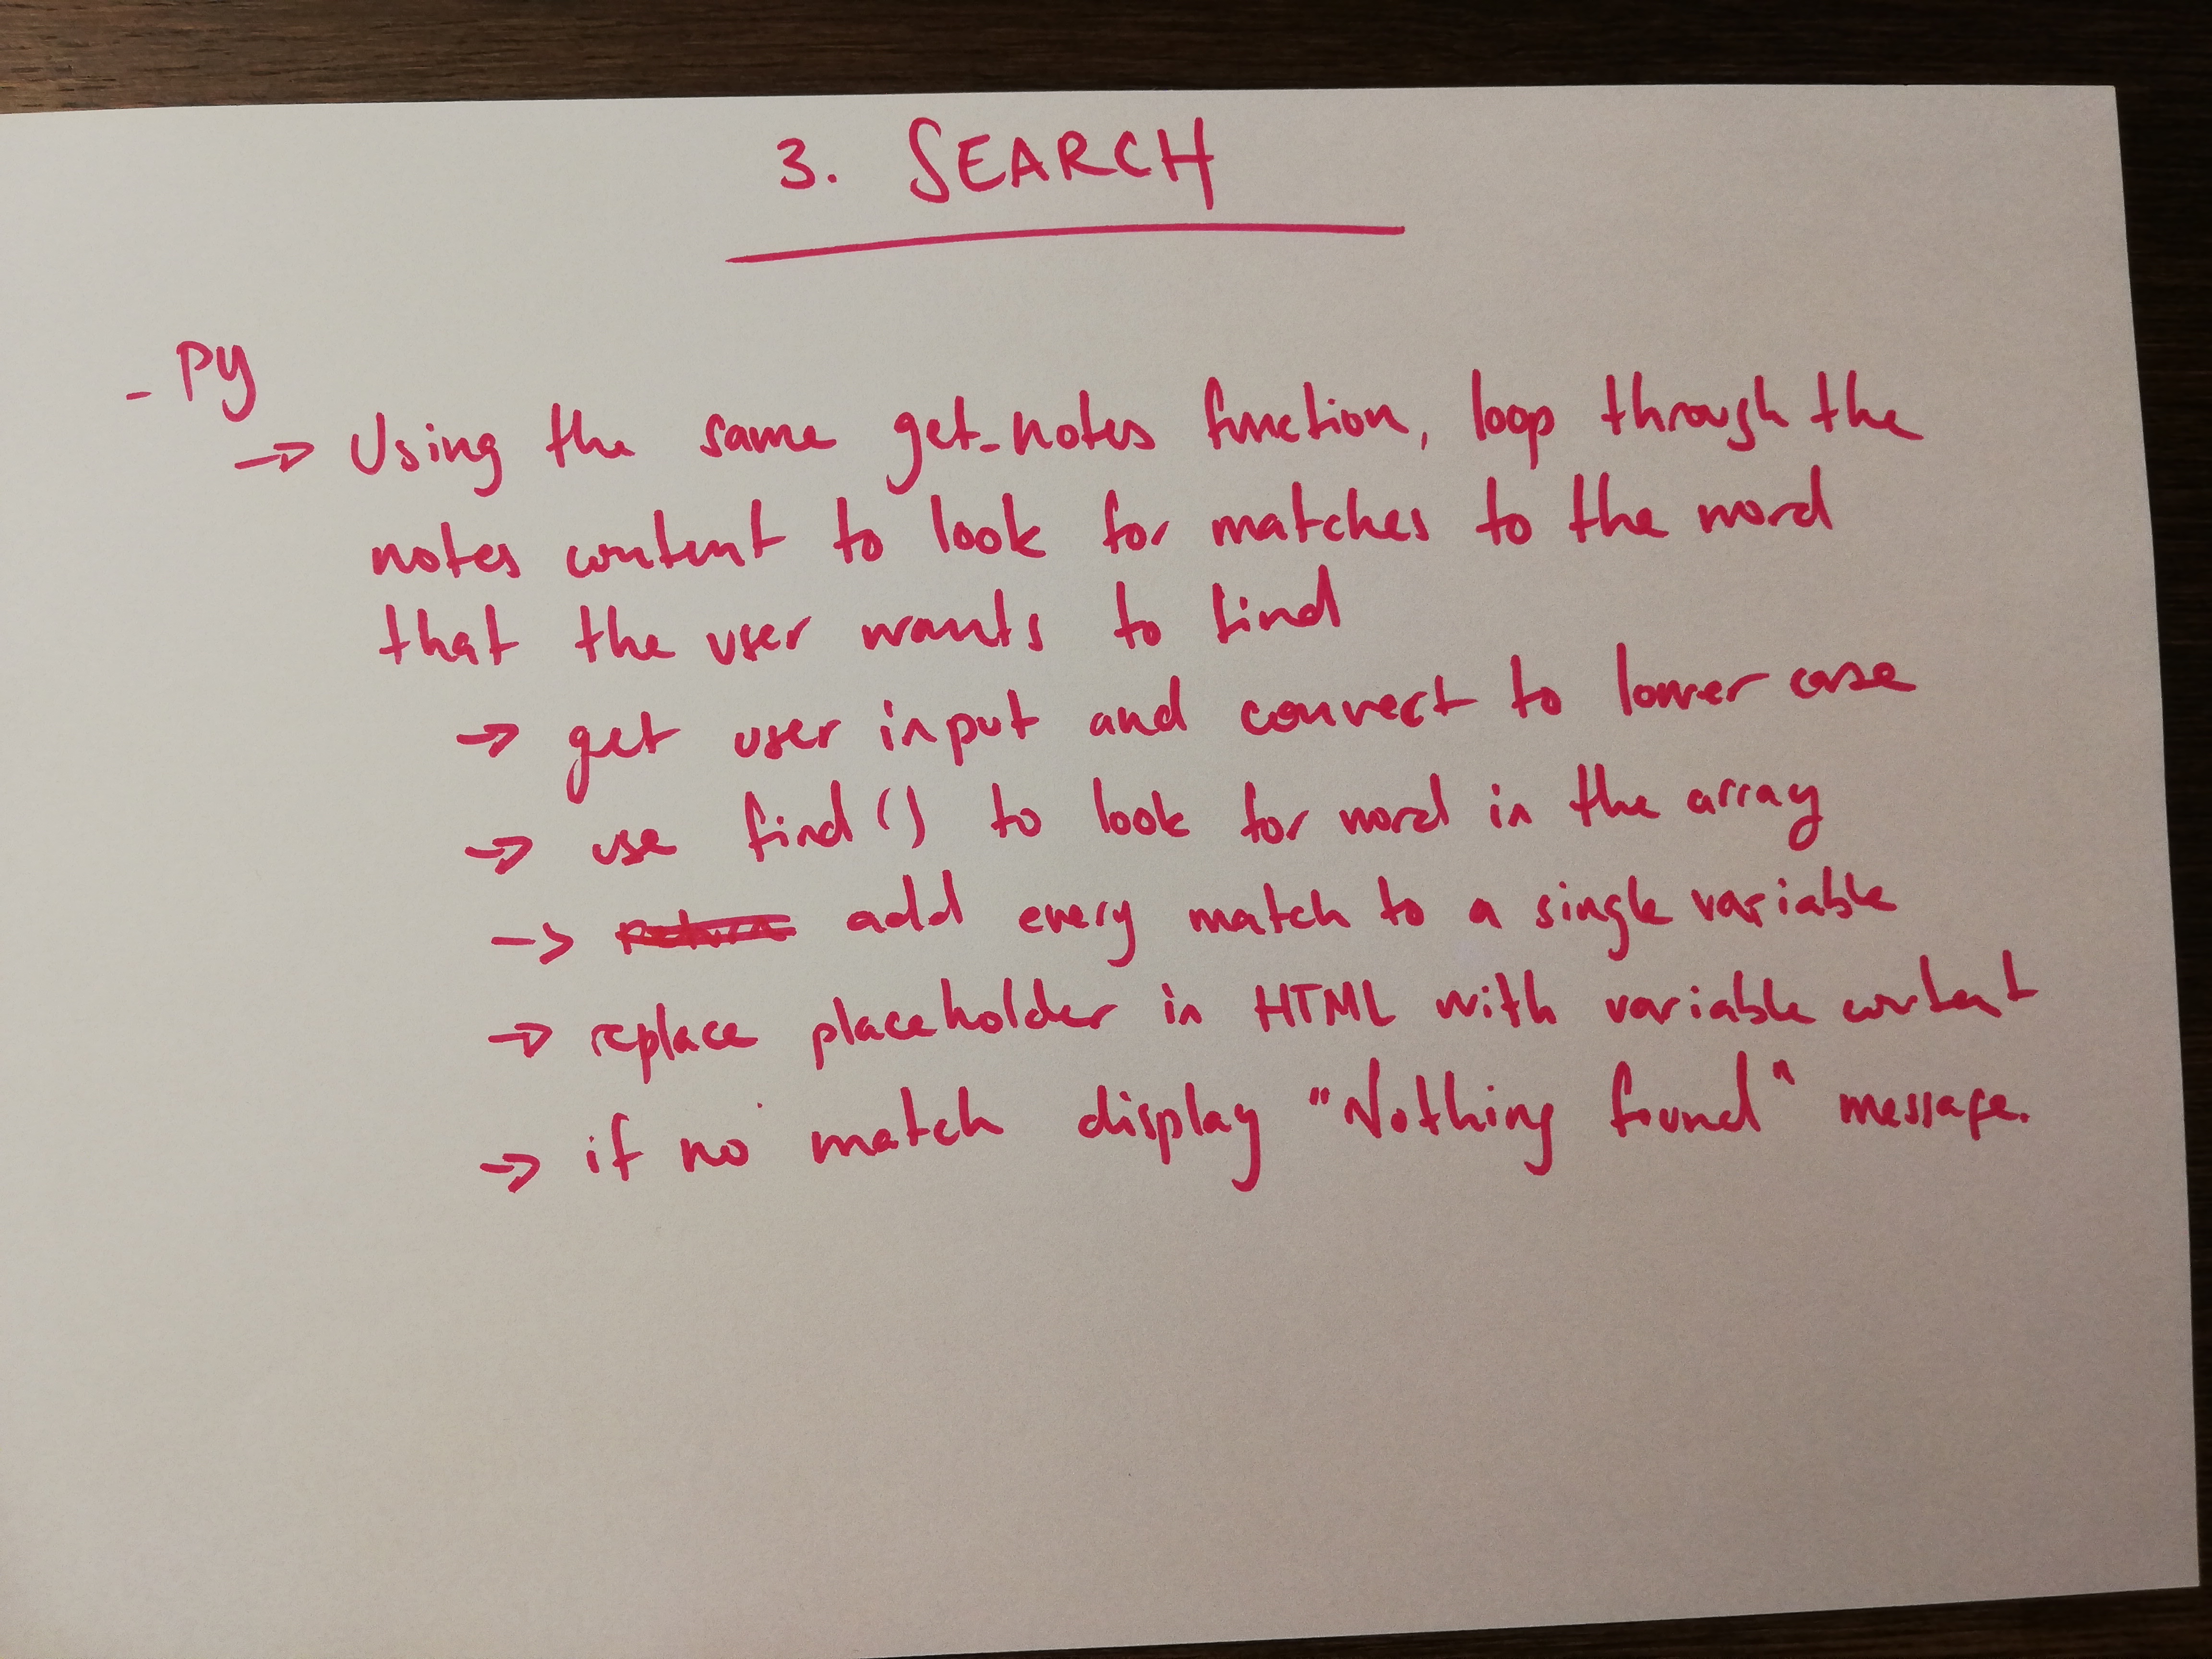 3. SEARCH
- Py
→ Using the same get_notes function, loop through the
notes content to look for matches to the word
that the user wants to find
→ get user input and convert to lower case
→ use find() to look for word in the array
→ add every match to a single variable
→ replace placeholder in HTML with variable content
→ if no match display "Nothing found" message.